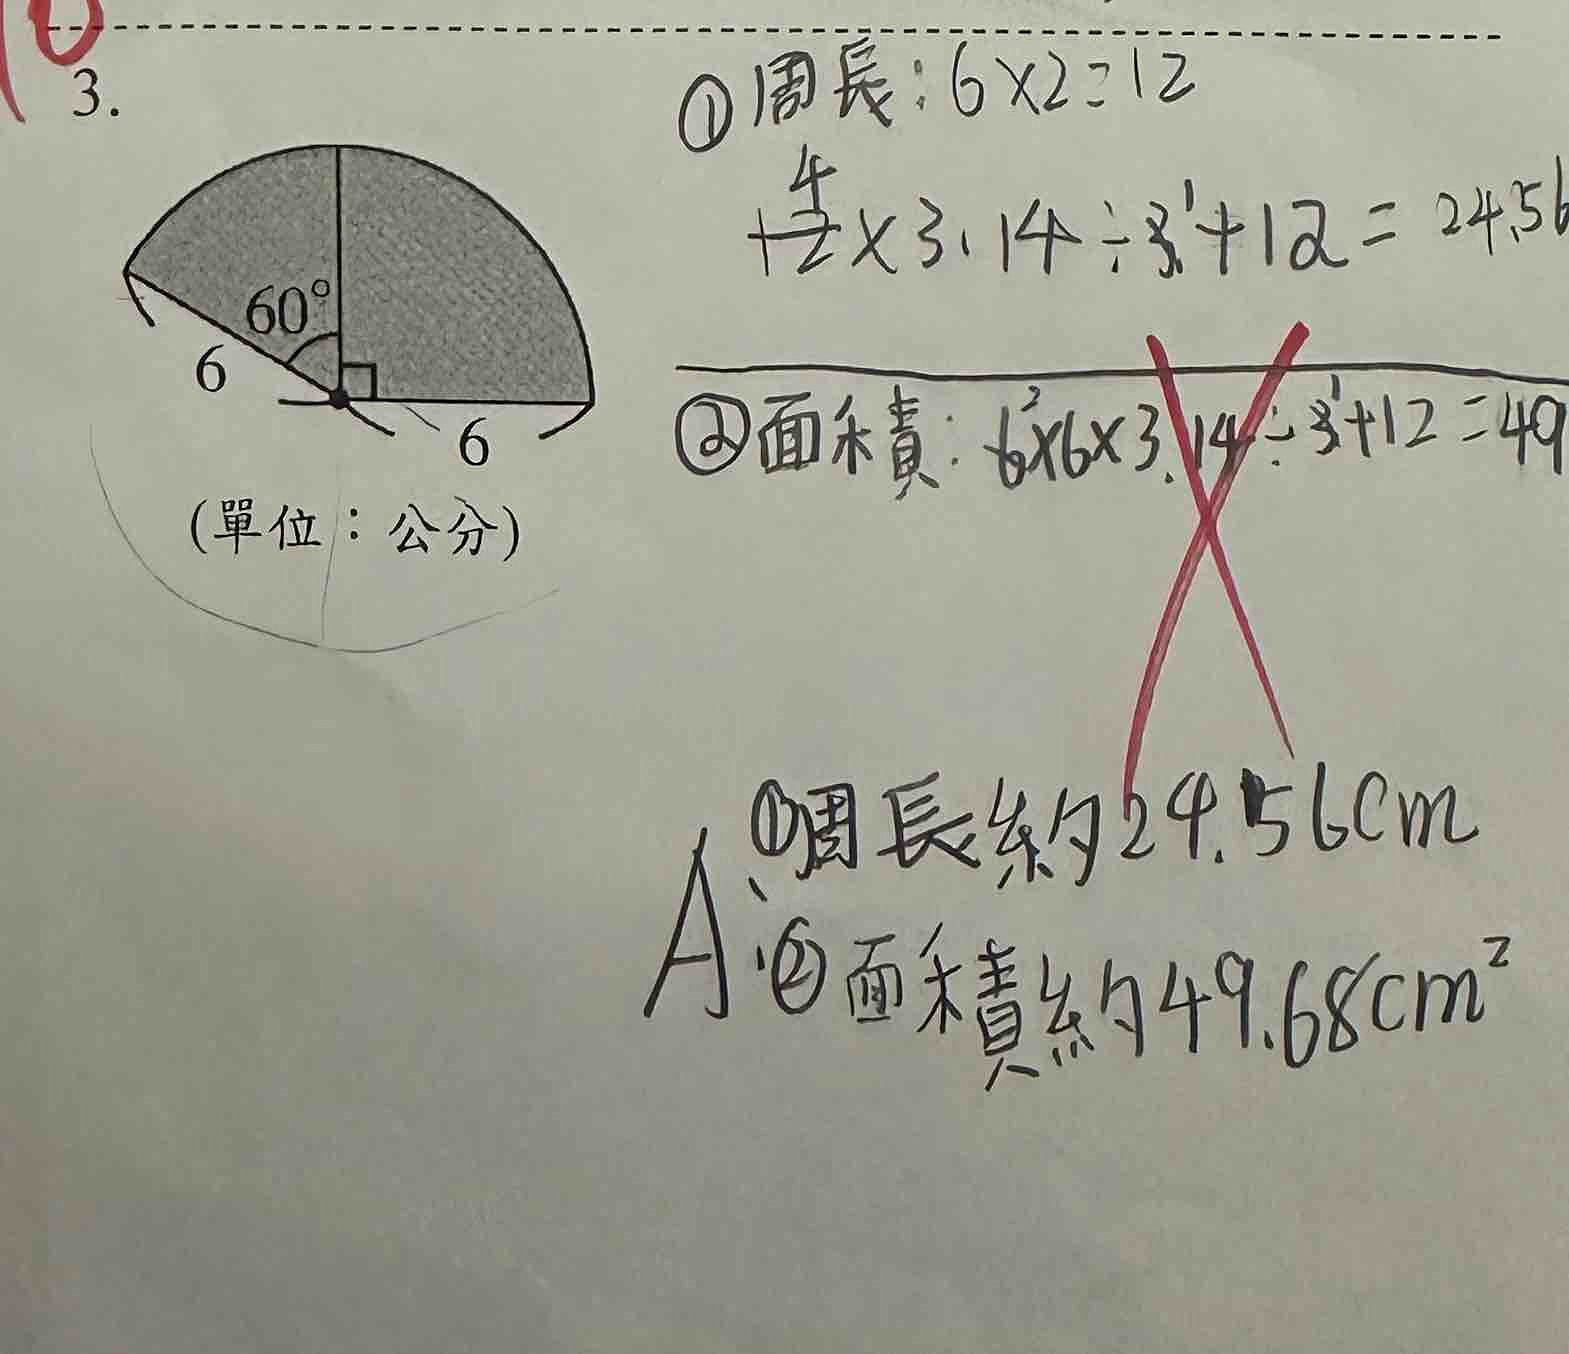 3.
60°
6
6
(單位：公分)
①周長：6×2=12
12 4 ×3.14÷3 1+12=24.56
②面積：6 2×6×3.14÷3 1+12=49
A：①周長約24.56cm
②面積約49.68cm²